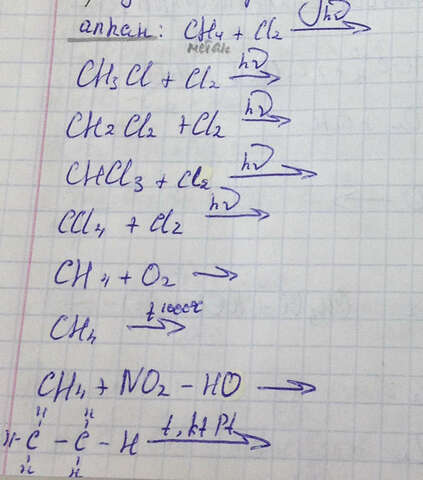 алкан: CH4 + Cl2 hν →
метан
CH3Cl + Cl2 hν →
CH2Cl2 + Cl2 hν →
CHCl3 + Cl2 hν →
CCl4 + Cl2 hν →
CH4 + O2 →
CH4 t 1000°C →
CH4 + NO2 - HO →
H H
H - C - C - H t, kt Pt →
H H